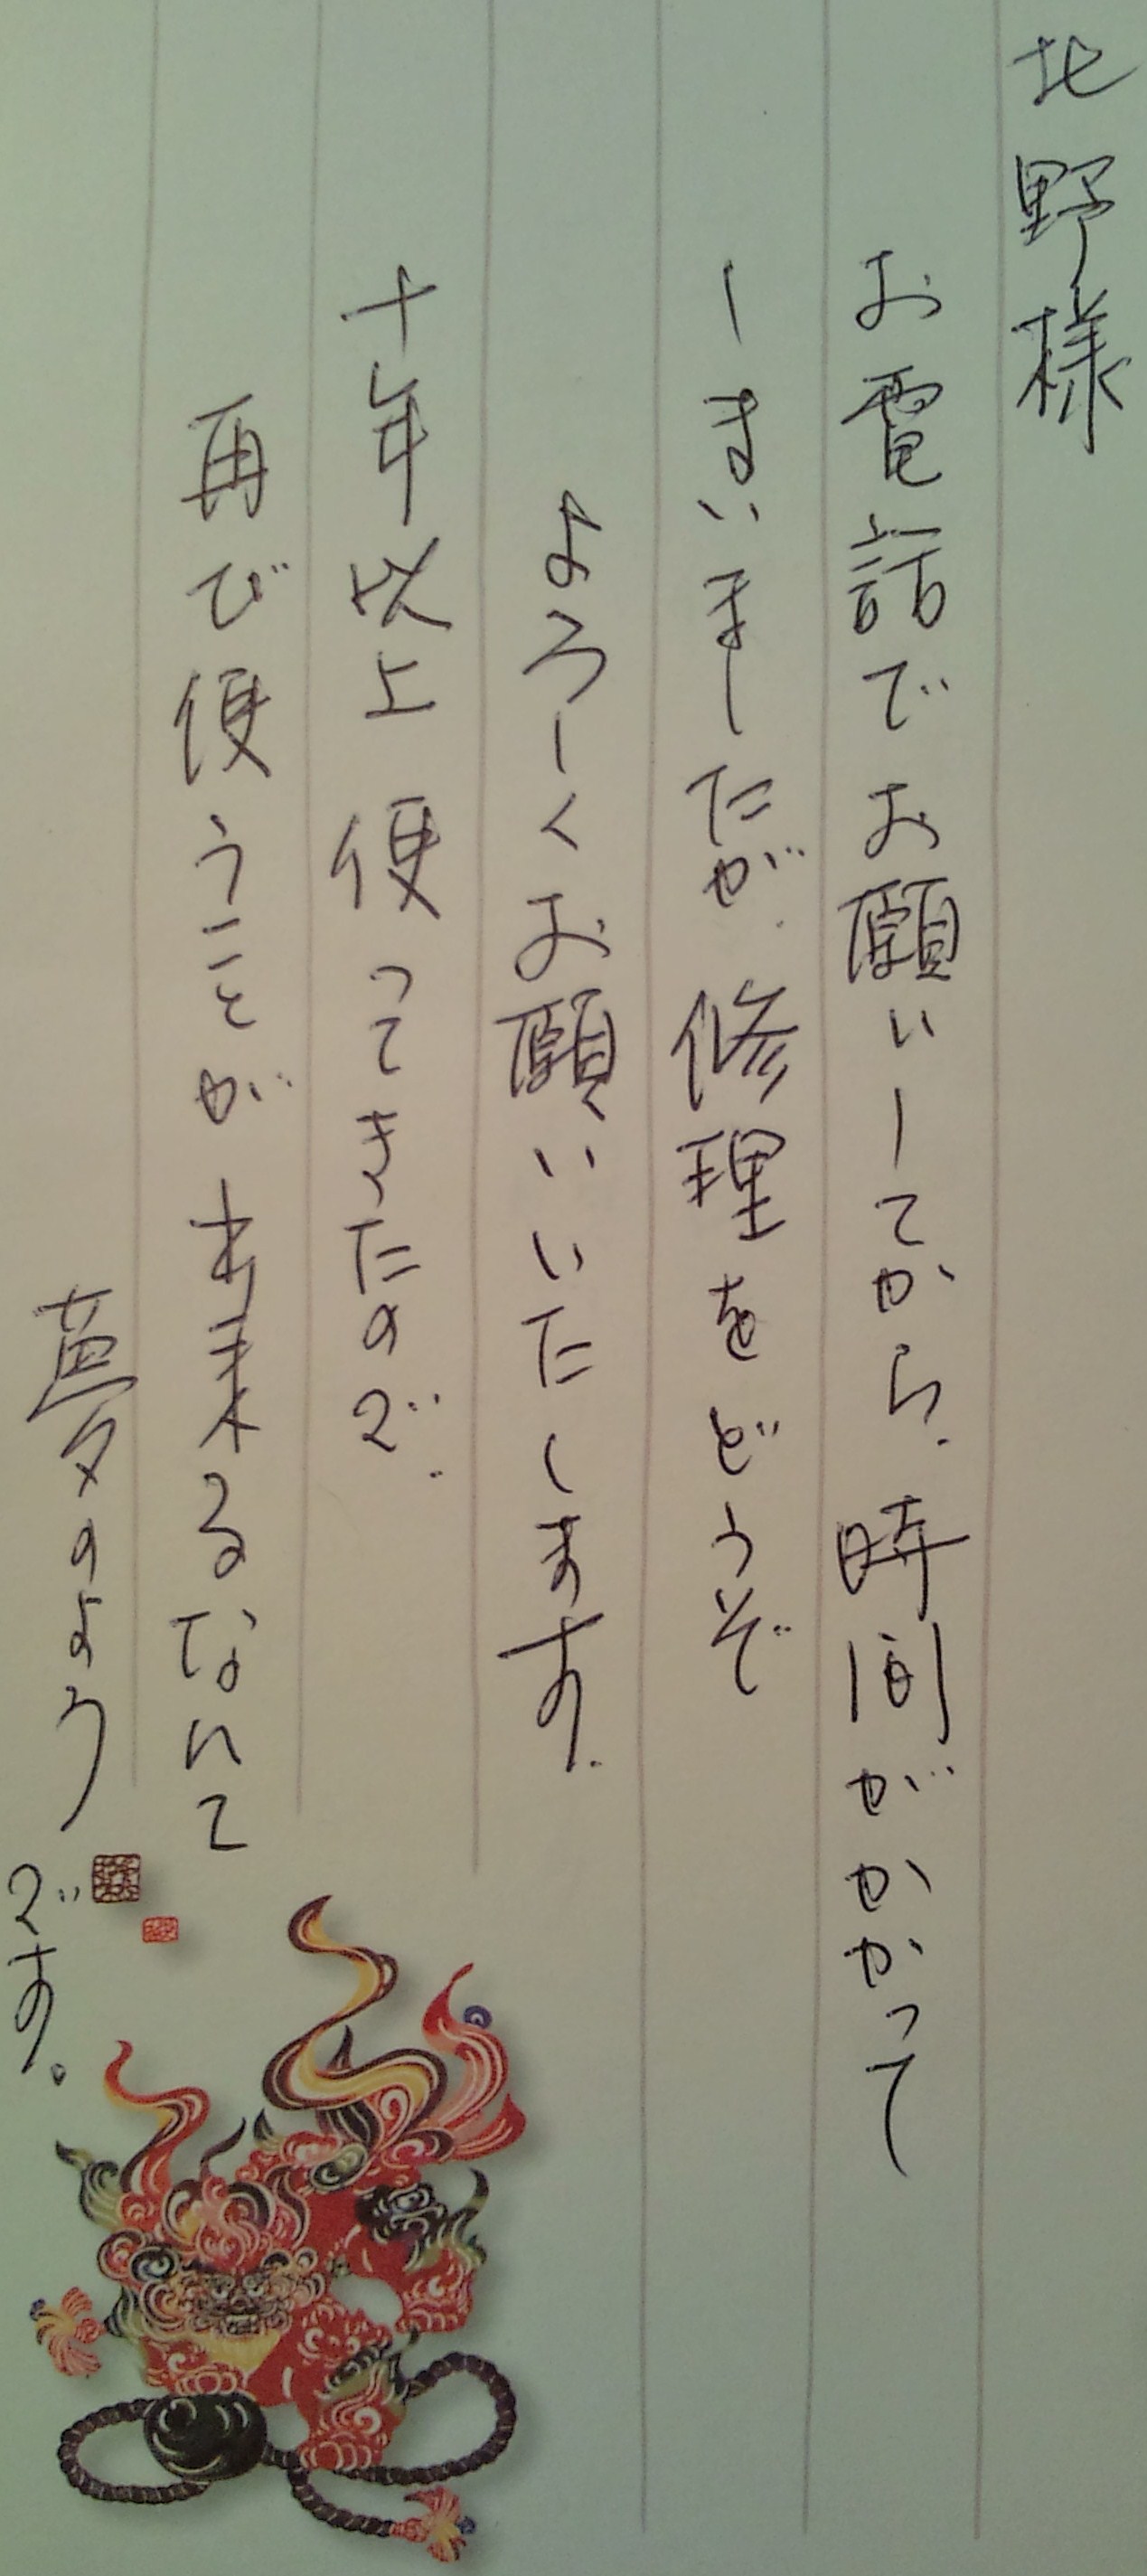 北野様
お電話でお願いしてから、時間がかかって
しまいましたが、修理をどうぞ
よろしくお願いいたします。
十年以上使ってきたので、
再び使うことが出来るなんて
夢のよう
です。